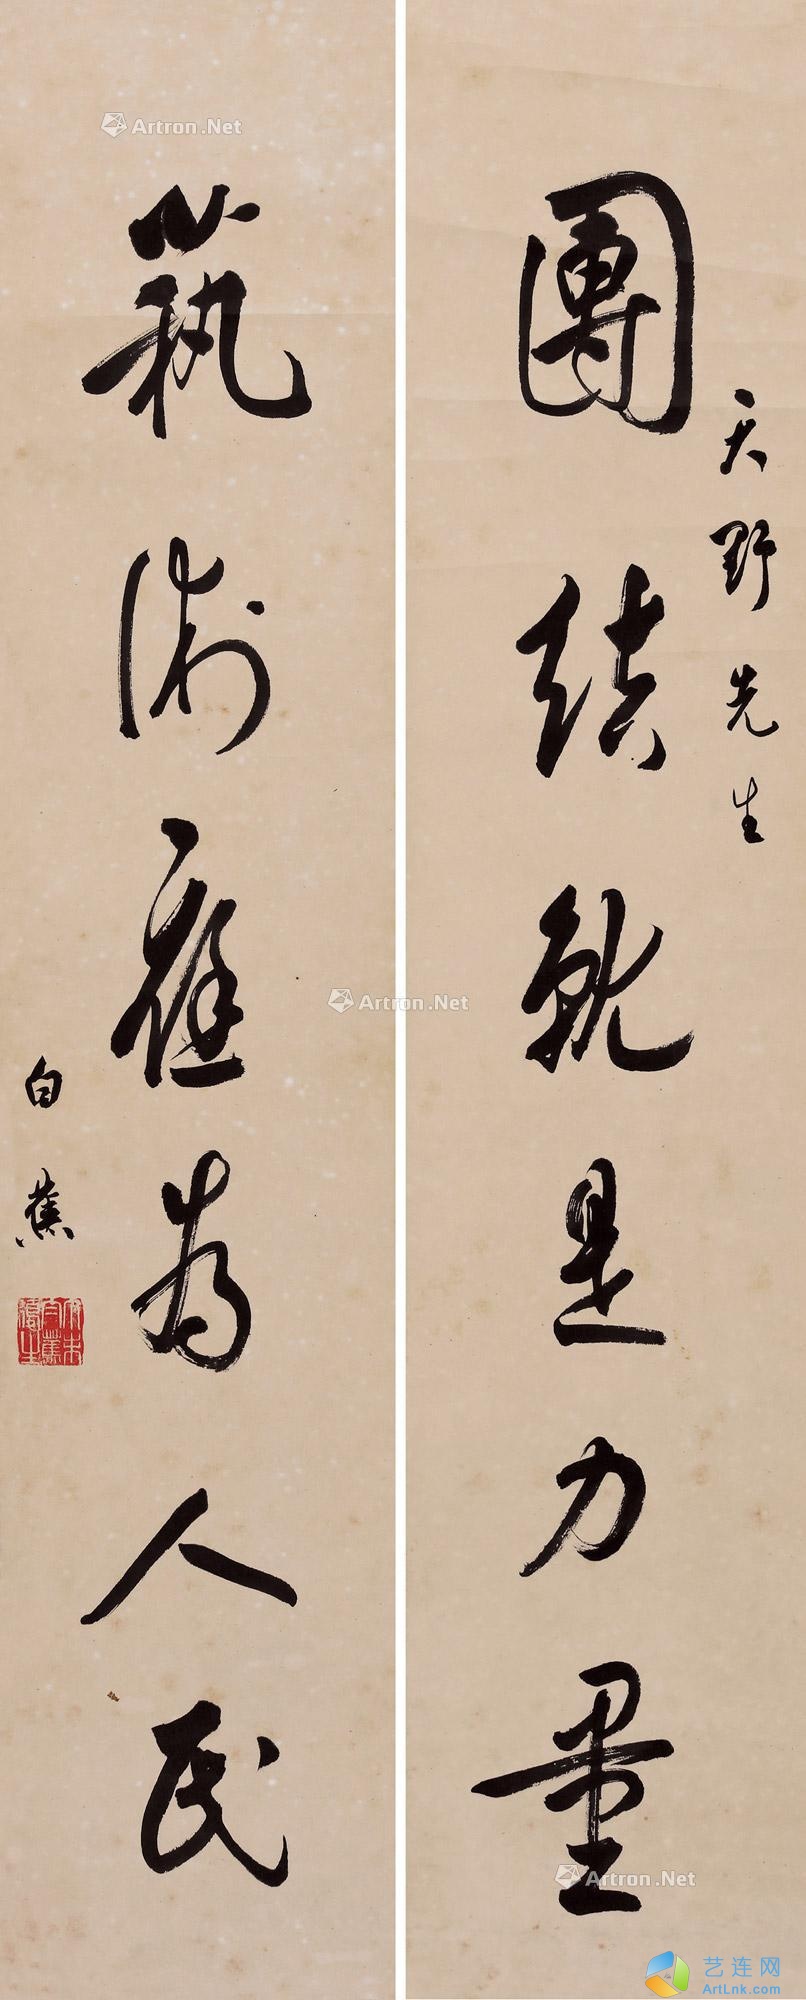 天野先生
團結就是力量
藝術應為人民
白蕉
Artron.Net
Artron.Net
Artron.Net
艺连网
ArtLnk.com